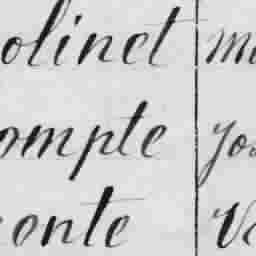 olinet M
ompte Jo
onte V